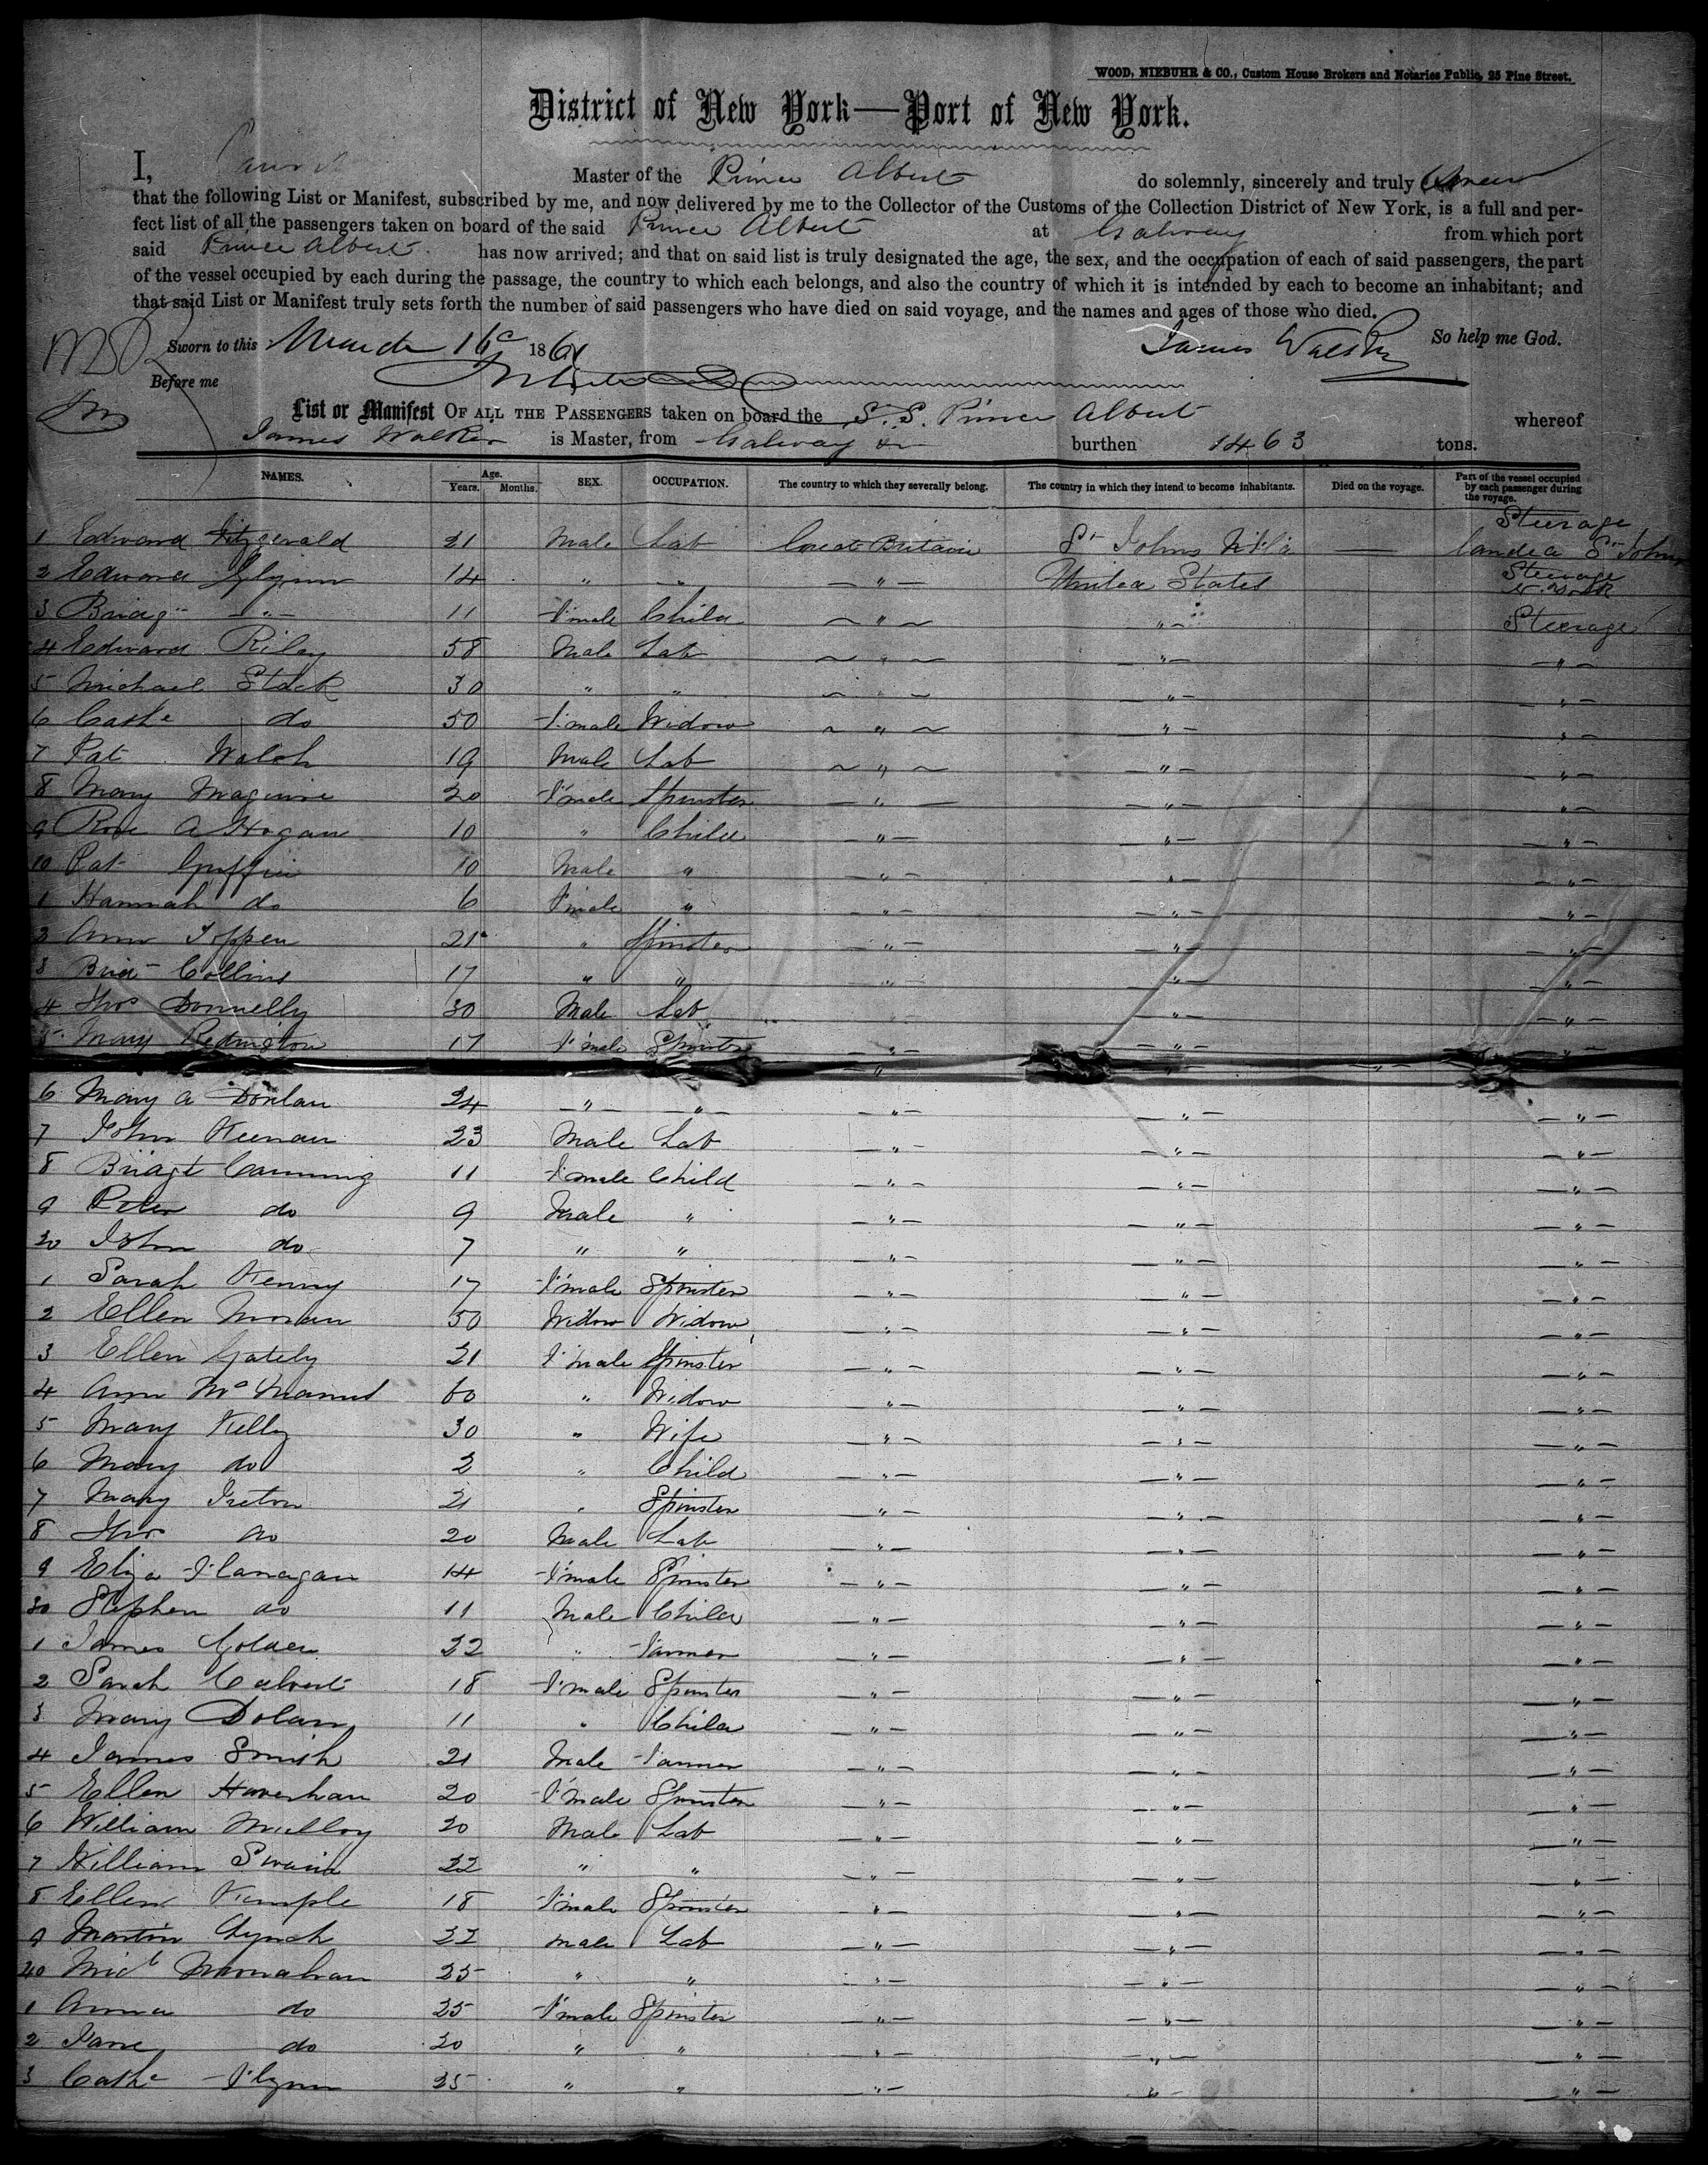 WOOD, NIEBUHR & CO., Custom House Brokers and Notaries Public, 25 Pine Street.
District of New York—Port of New York.
I, Master of the Prince Albert do solemnly, sincerely and truly
that the following List or Manifest, subscribed by me, and now delivered by me to the Collector of the Customs of the Collection District of New York, is a full and per-
fect list of all the passengers taken on board of the said Prince Albert at Galway from which port
said Prince Albert has now arrived; and that on said list is truly designated the age, the sex, and the occupation of each of said passengers, the part
of the vessel occupied by each during the passage, the country to which each belongs, and also the country of which it is intended by each to become an inhabitant; and
that said List or Manifest truly sets forth the number of said passengers who have died on said voyage, and the names and ages of those who died.
Sworn to this March 16 1861 James Walker So help me God.
Before me
List or Manifest OF ALL THE PASSENGERS taken on board the S.S. Prince Albert whereof
James Walker is Master, from Galway burthen 1463 tons.
NAMES. Age. Years. Months. SEX. OCCUPATION. The country to which they severally belong. The country in which they intend to become inhabitants. Died on the voyage. Part of the vessel occupied by each passenger during the voyage.
1 Edward Fitzgerald 21 Male Lab Great Britain St Johns Nfld — Steerage landed St Johns
2 Edward Glynn 14 " " — " — United States Steerage N. York
3 Bridgt — " — 11 Female Child ~ " ~ " Steerage
4 Edward Riley 58 Male Lab ~ " ~ " — " —
5 Michael Stack 30 " " ~ " ~ " — " —
6 Cathe do 50 Female Widow ~ " ~ " — " —
7 Pat Walsh 19 Male Lab ~ " ~ " — " —
8 Mary Maguire 20 Female Spinster — " — " — " —
9 Rose A Hogan 10 " Child — " — " — " —
10 Pat Griffin 10 Male " — " — " — " —
1 Hannah do 6 Female " — " — " — " —
2 Ann Toppen 21 " Spinster — " — " — " —
3 Brid Collins 17 " " — " — " — " —
4 Thos Donnelly 30 Male Lab " — " —
5 Mary Redington 17 Female Spinster — " — " — " —
6 Mary A Donlan 24 — " — — " — — " — — " — — " —
7 John Keenan 23 Male Lab — " — — " — — " —
8 Bridgt Canning 11 Female Child — " — — " — — " —
9 Peter do 9 Male " — " — — " — — " —
20 John do 7 " " — " — — " — — " —
1 Sarah Kenny 17 Female Spinster — " — — " — — " —
2 Ellen Moran 50 Widow Widow — " — — " — — " —
3 Ellen Gately 21 Female Spinster — " — — " — — " —
4 Ann McManus 60 " Widow — " — — " — — " —
5 Mary Kelly 30 " Wife — " — — " — — " —
6 Mary do 2 " Child — " — — " — — " —
7 Mary Ireton 21 " Spinster — " — — " — — " —
8 Thos do 20 Male Lab — " — — " — — " —
9 Eliza Flanagan 14 Female Spinster — " — — " — — " —
30 Stephen do 11 Male Child — " — — " — — " —
1 James Golden 22 " Farmer — " — — " — — " —
2 Sarah Calvert 18 Female Spinster — " — — " — — " —
3 Mary Dolan 11 " Child — " — — " — — " —
4 James Smith 21 Male Farmer — " — — " — — " —
5 Ellen Haverhan 20 Female Spinster — " — — " — — " —
6 William Mulloy 20 Male Lab — " — — " — — " —
7 William Swain 22 " " — " — — " — — " —
8 Ellen Kemple 18 Female Spinster — " — — " — — " —
9 Martin Lynch 22 Male Lab — " — — " — — " —
40 Michl Monahan 25 " " — " — — " — — " —
1 Anna do 25 Female Spinster — " — — " — — " —
2 Jane do 20 " " — " — — " — — " —
3 Cathe Flynn 25 " " — " — " — — " —